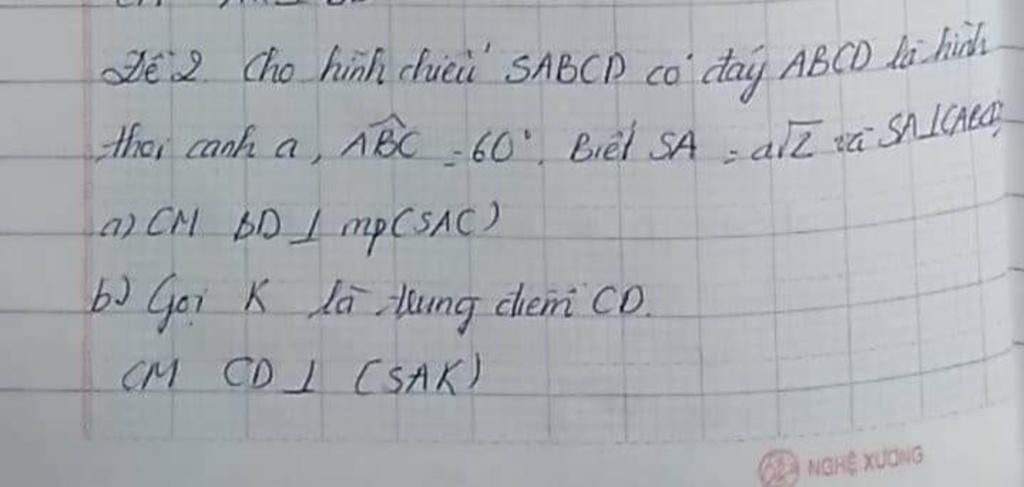 Đề 2. Cho hình chiếu SABCD có đáy ABCD là hình
thoi canh a, ABC = 60°. Biết SA = a√2 và SA⊥(ABCD)
a) CM BD ⊥ mp(SAC)
b) Gọi K là trung điểm CD.
CM CD ⊥ (SAK)
NGHÊ XUONG